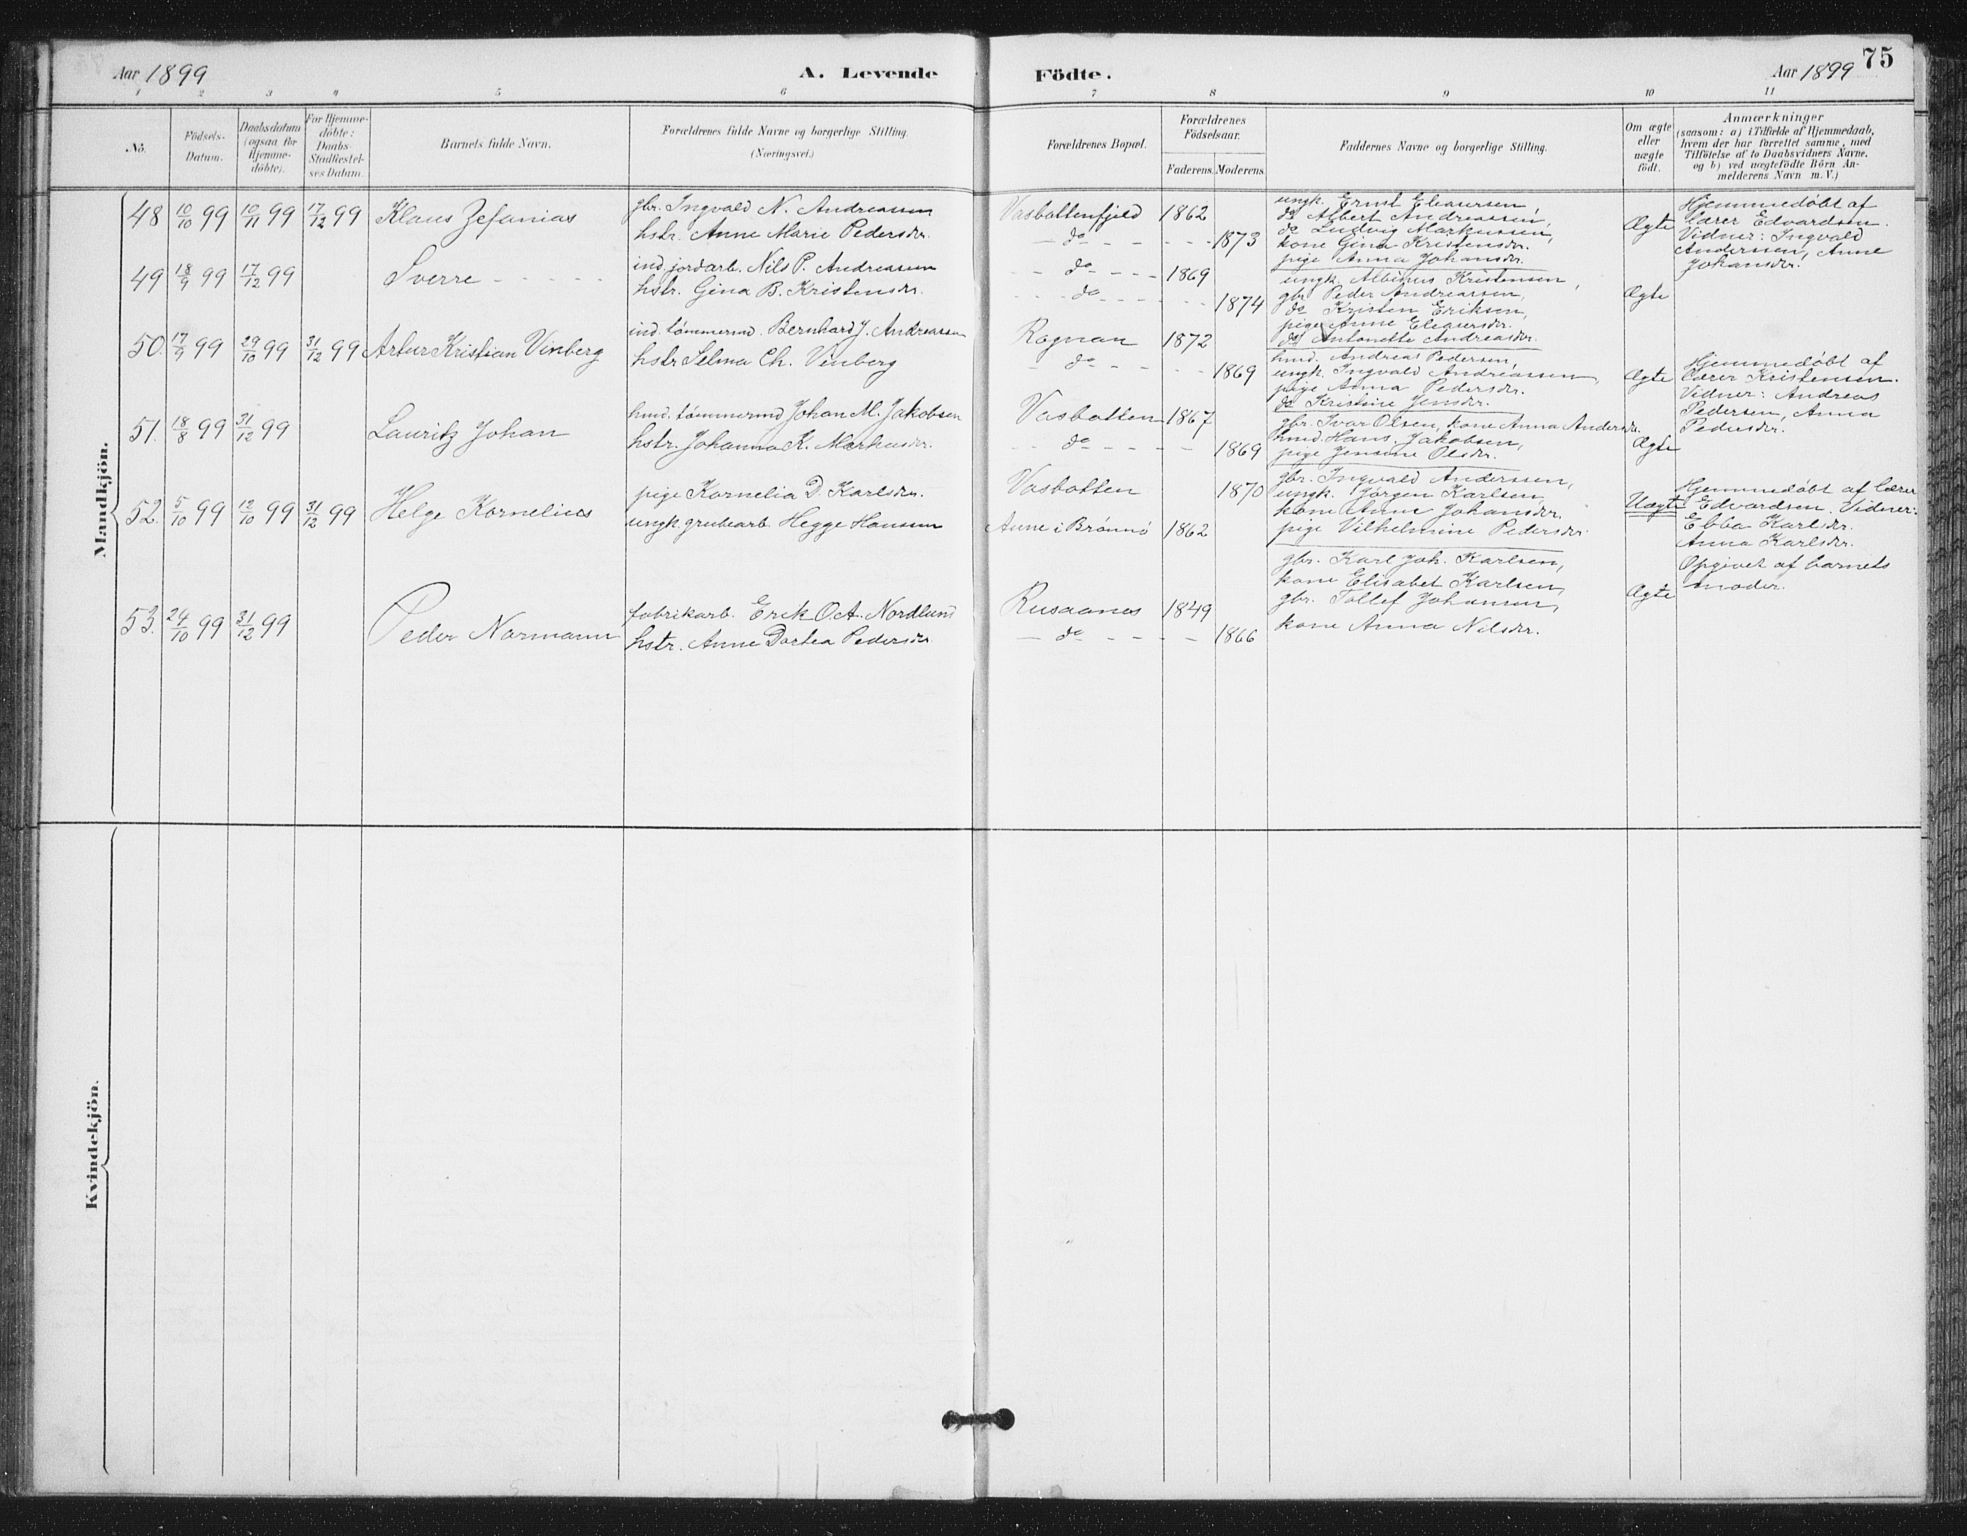 Aar 1899
A. Levende
Födte.
Aar 1899
75
1 2 3 4 5 6 7 8 9 10 11
No.
Födsels-
Datum.
Daabsdatum
(ogsaa for
Hjemme-
döbte).
For Hjemme-
döbte:
Daabs-
Stadfæstel-
ses Datum.
Barnets fulde Navn.
Forældrenes fulde Navne og borgerlige Stilling.
(Næringsvei.)
Forældrenes Bopæl.
Forældrenes
Födselsaar.
Faderens. Moderens.
Faddernes Navne og borgerlige Stilling.
Om ægte
eller
uægte
födt.
Anmærkninger
(saasom: a) i Tilfælde af Hjemmedaab,
hvem der har forrettet samme, med
Tilföielse af to Daabsvidners Navne,
og b) ved uægtefödte Börn An-
melderens Navn m. V.)
Mandkjön.
48 10/10 99 10/11 99 17/12 99 Klaus Zefanias
gbr. Ingvald N. Andreassen
hstr. Anne Marie Pedersdr.
Vasbottenfjeld 1862
do 1873
ungk. Ernst Eleasersen,
do Albert Andreassen,
do Ludvig Markussen,
kone Gina Kristensdr.
pige Anna Johansdr.
Ægte
Hjemmedøbt af
Lærer Edvardsen.
Vidner: Ingvald
Anderssen, Anne
Johansdr.
49 18/9 99 17/12 99 Sverre
ind. jordarb. Nils P. Andreassen
hstr. Gina B. Kristensdr.
do 1869
do 1874
ungk. Albinus Kristensen,
gbr. Peder Andreassen,
do Kristen Eriksen,
pige Anne Eleasersdr.
do Antonette Andreasdr.
Ægte
50. 17/9 99 29/10 99 31/12 99 Artur Kristian Vinberg
ind. tømmermd. Bernhard J. Andreassen
hstr. Selma Ch. Vinberg
Rognan 1872
do 1869
hmd. Andreas Pedersen
ungk. Ingvald Andreassen,
pige Anna Pedersdr.
do Kristine Jensdr.
Ægte
Hjemmedøbt af
Lærer Kristensen.
Vidner: Andreas
Pedersen, Anna
Pedersdr.
51. 18/8 99 31/12 99 Lauritz Johan
hmd. tømmermd Johan M. Jakobsen
hstr. Johanna K. Markusdr.
Vasbotten 1867
do 1869
gbr. Ivar Olsen, kone Anna Andersdr.
hmd. Hans Jakobsen,
pige Jensine Olsdr.
Ægte
52. 5/10 99 12/10 99 31/12 99 Helge Kornelius
pige Kornelia D. Karlsdr.
ungk. grubearb. Hegge Hansen
Vasbotten 1870
Aune i Brønnø 1862
gbr. Ingvald Anderssen,
ungk. Jørgen Karlsen,
kone Anne Johansdr.
pige Vilhelmine Pedersdr.
Uægte
Hjemmedøbt af lærer
Edvardsen. Vidner:
Ebba Karlsdr.
Anna Karlsdr.
Opgivet af barnets
moder.
53. 24/10 99 31/12 99 Peder Normann
fabrikarb. Erik O. A. Nordlund
hstr. Anne Dortea Pedersdr.
Rusaanes 1849
do 1866
gbr. Karl Joh. Karlsen,
kone Elisabet Karlsen,
gbr. Tollef Johansen,
kone Anna Nilsdr.
Ægte
Kvindekjön.